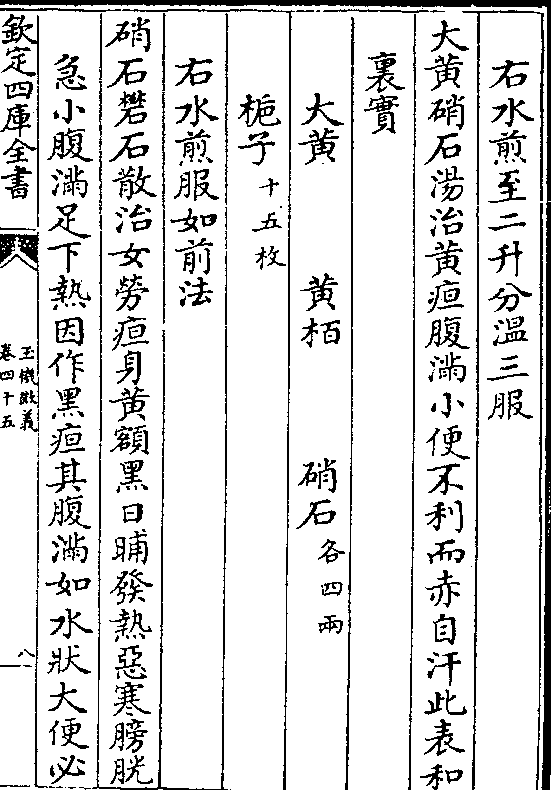 右水煎至二升分溫三服
大黄硝石湯治黄疸腹滿小便不利而赤自汗此表和
裏實
大黄　黄栢　硝石各四兩
梔子十五枚
右水煎服如前法
硝石礬石散治女勞疸身黄額黑日晡發熱惡寒膀胱
急小腹滿足下熱因作黑疸其腹滿如水狀大便必
欽定四庫全書
玉機微義
卷四十五
八